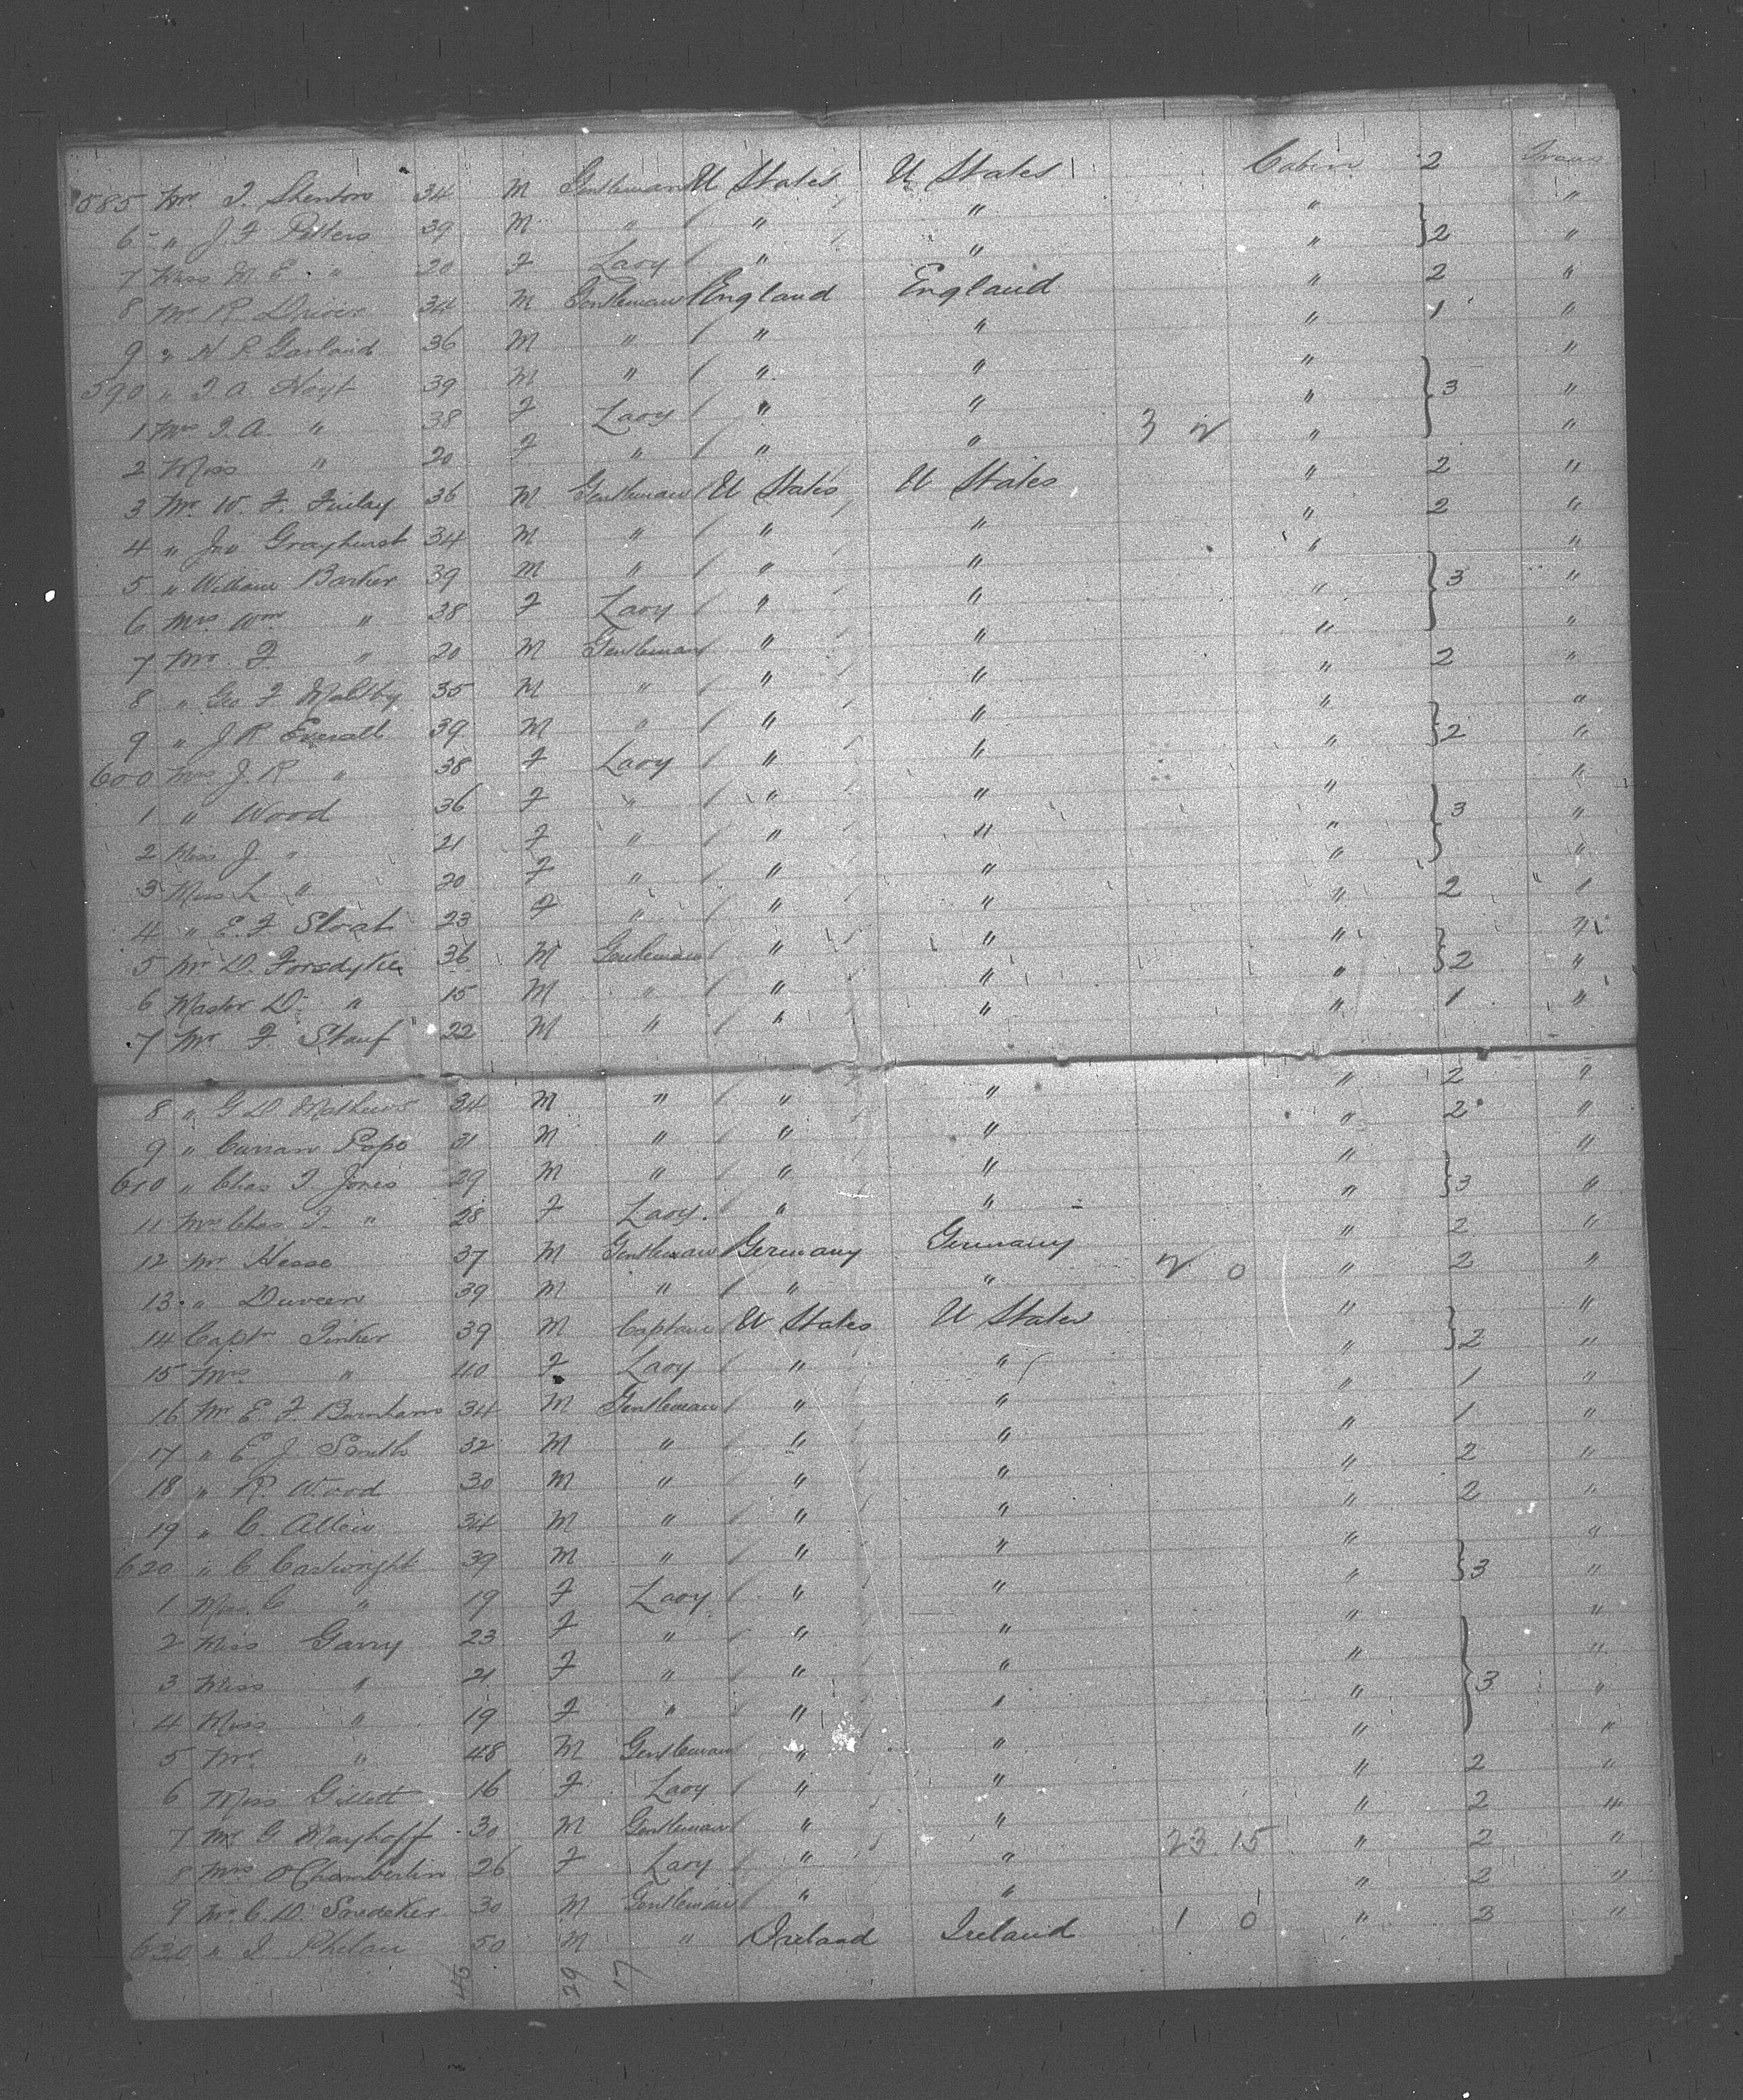 585 Mr. T. Shenton 34 M Gentleman U States U States Cabin 2
6 " J. F Potters 39 M " " " " } 2 "
7 Miss M. E. " 20 F Lady " " " "
8 Mr. R Driver 34 M Gentleman England England " 2 "
9 " H P. Garland 36 M " " " " 1 "
590 " T. A. Hoyt 39 M " " " " "
1 Mrs T. A. " 38 F Lady " " " } 3 "
2 Miss " 20 F " " " 3 2 " "
3 Mr. W. F. Finlay 36 M Gentleman U States U States " 2 "
4 " Jno Grayhurst 34 M " " " " 2 "
5 " William Barker 39 M " " " " "
6 Mrs Wm " 38 F Lady " " " } 3 "
7 Mr. F. " 20 M Gentleman " " " "
8 " Geo F Maltby 35 M " " " " 2 "
9 " J R Everall 39 M " " " " "
600 Mrs J. R " 38 F Lady " " " } 2 "
1 " Wood 36 F " " " " "
2 Miss J. " 21 F " " " " } 3 "
3 Miss L " 20 F " " " " "
4 " E. F Sloat 23 F " " " " 2 "
5 Mr D. Forsdyke 36 M Gentleman " " " "
6 Master D. " 15 M " " " " } 2 "
7 Mr F. Stauf 22 M " " " " 1 "
8 " G D Mathews 34 M " " " " 2 "
9 " Curran Pope 31 M " " " " 2 "
610 " Chas T. Jones 29 M " " " " "
11 Mrs Chas T. " 28 F Lady " " " } 3 "
12 Mr Hesse 37 M Gentleman Germany Germany " 2 "
13 " Duveen 39 M " " " 2 0 " 2 "
14 Captn Tinker 39 M Captain U States U States " "
15 Mrs " 40 F Lady " " " } 2 "
16 Mr E F Burnham 34 M Gentleman " " " 1 "
17 " E J Smith 32 M " " " " 1 "
18 " R. Wood 30 M " " " " 2 "
19 " C. Allen 34 M " " " " 2 "
620 " C Cartwright 39 M " " " " "
1 Miss C " 19 F Lady " " " } 3 "
2 Miss Garry 23 F " " " " "
3 Miss " 21 F " " " " "
4 Miss " 19 F " " " " } 3 "
5 Mr. " 48 M Gentleman " " " "
6 Miss Gillett 16 F Lady " " " 2 "
7 Mr G. Mayhoff 30 M Gentleman " " " 2 "
8 Mrs O Chamberlin 26 F Lady " " 23 15 " 2 "
9 Mr. C. D. Snedeker 30 M Gentleman " " " 2 "
630 " J. Phelan 50 M " Ireland Ireland 1 0 " 3 "
46 29 17